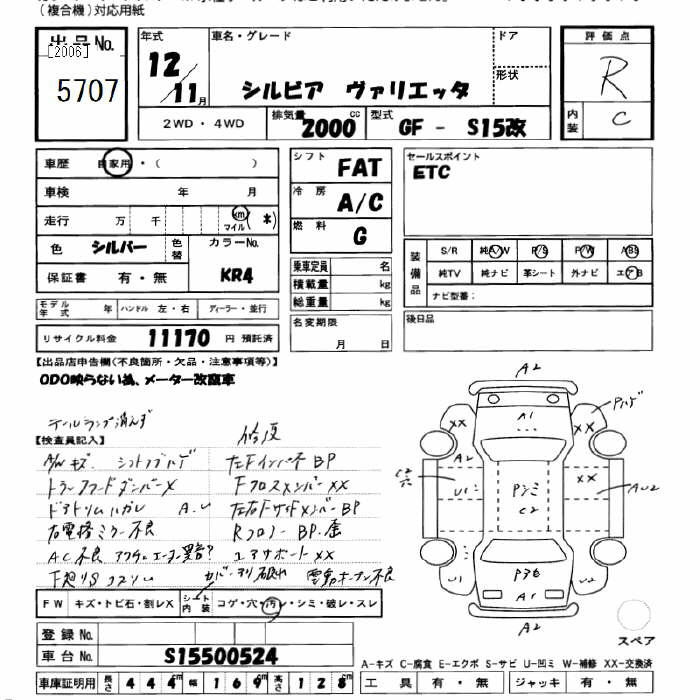 （複合機）対応用紙
出品No.
[2006]
5707
年式
12
11月
車名・グレード
シルビア ヴァリエッタ
ドア
形状
2WD・4WD
排気量
2000cc
型式
GF - S15改
評価点
R
内装
C
車歴 自家用・（ ）
車検 年 月
走行 万 千 km マイル (*)
色 シルバー 色替
カラーNo. KR4
保証書 有・無
モデル年式 年 ハンドル 左・右 ディーラー・並行
リサイクル料金 11170 円 預託済
シフト FAT
冷房 A/C
燃料 G
乗車定員 名
積載量 kg
総重量 kg
名変期限
月 日
セールスポイント
ETC
装備品
S/R 純A/W P/S P/W ABS
純TV 純ナビ 革シート 外ナビ エアB
ナビ型番：
後日品
【出品店申告欄(不良箇所・欠品・注意事項等)】
ODO映らない為、メーター改竄車
テールランプ消えず
【検査員記入】
修復
A/Wキズ シフトノブハゲ 左Fインパネ BP
トランクフードダンパーX Fクロスメンバー XX
ドアトリムハガレ A.U 左右FサイドメンバーBP
右電格ミラー不良 Rフロアー BP.歪
AC不良 コアサポート XX
電動オープン不良
FW キズ・トビ石・割レX
シート内装 コゲ・穴・汚レ・シミ・破レ・スレ
登録No.
車台No. S15500524
車庫証明用 長さ 444 幅 169 高さ 128
A2
A1
XX
XX
A2
U1
Pシミ
C2
XX
AU2
U2
U1
A1
A2
スペア
A-キズ C-腐食 E-エクボ S-サビ U-凹ミ W-補修 XX-交換済
工具 有・無 ジャッキ 有・無